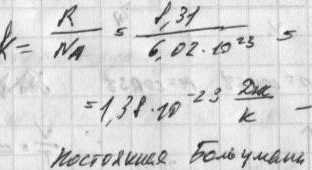 k = R/NA = 8,31/6,02·10²³ =
= 1,38·10⁻²³ Дж/К –
постоянная Больцмана